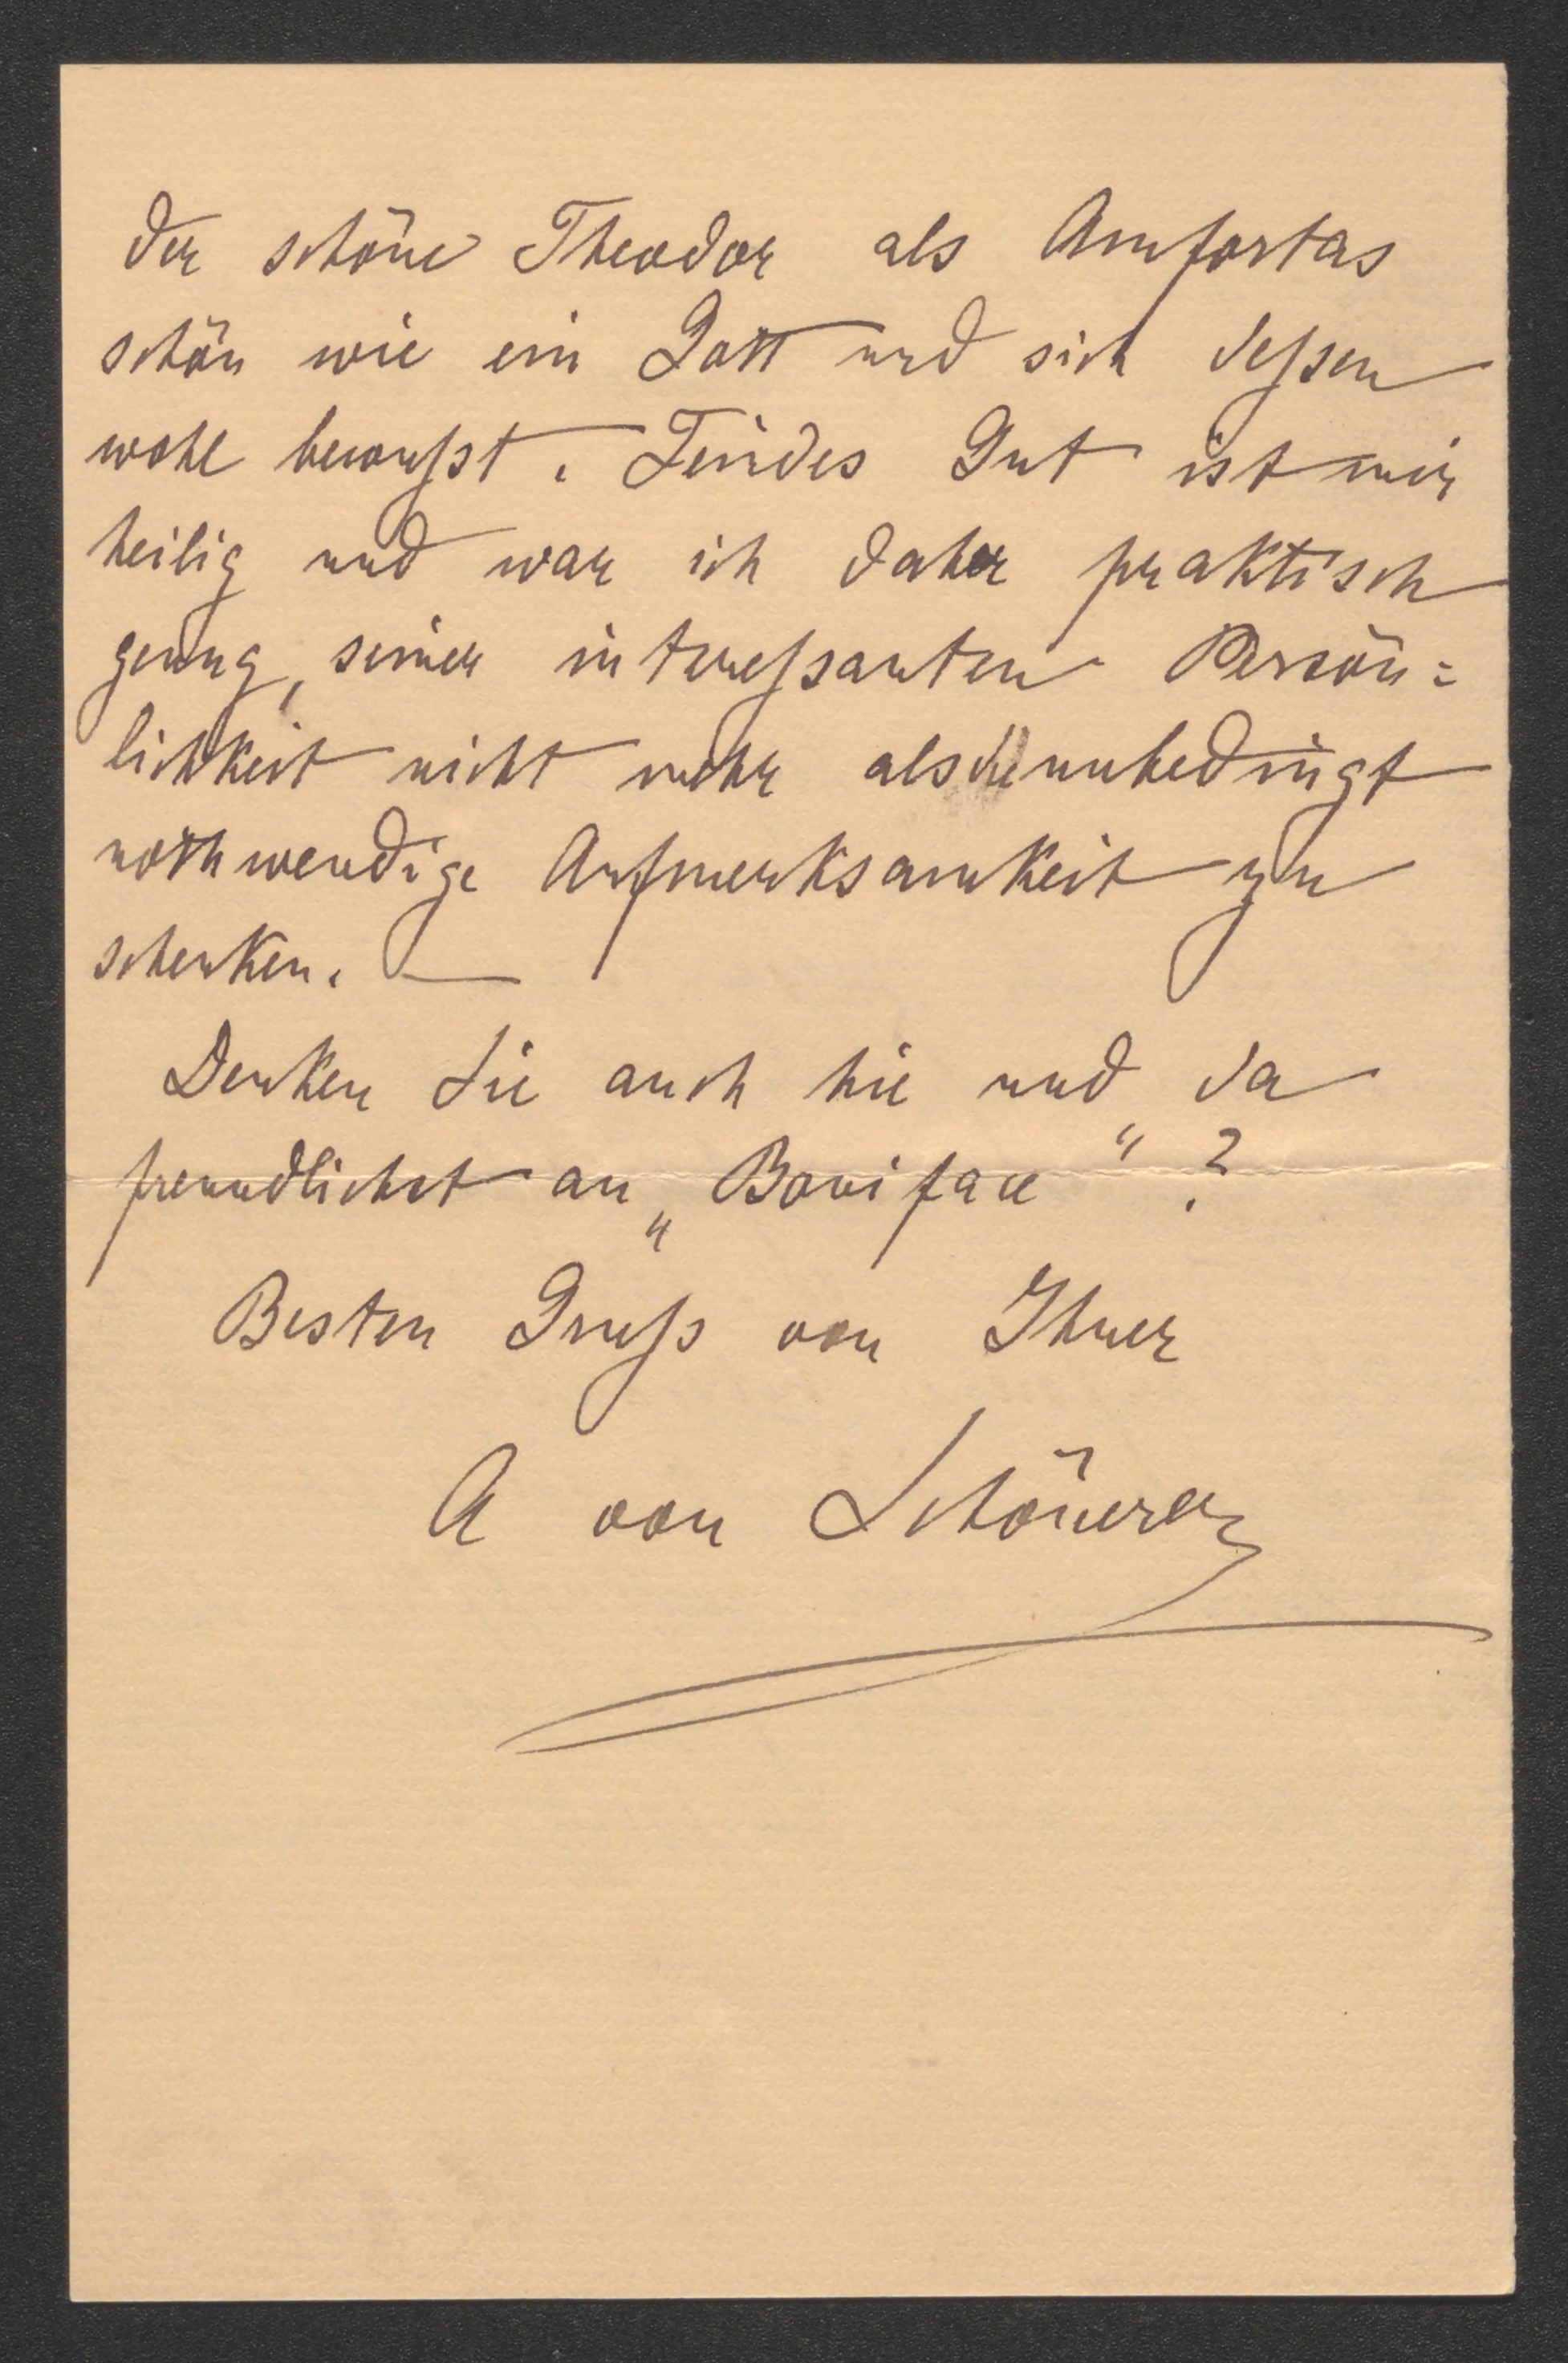 der schöne Theodor als Amfortas
schön wie ein Gott und sich dessen
wohl bewusst. Feindes Gut ist mir
heilig und war ich daher praktisch
genug, seiner interessanten Persön=
lichkeit nicht mehr als unbedingt
nothwendige Aufmerksamkeit zu
schenken. —
Denken Sie auch hie und da
freundlichst an „Boniface“?
Besten Gruss von Ihrer
A von Schönerer